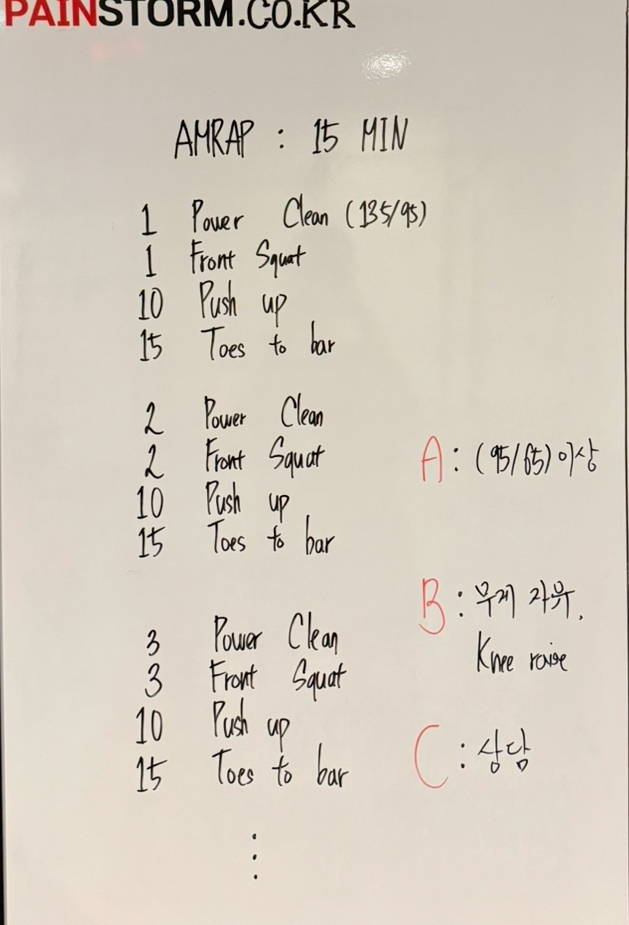 PAINSTORM.CO.KR
AMRAP : 15 MIN
1 Power Clean (135/95)
1 Front Squat
10 Push up
15 Toes to bar
2 Power Clean
2 Front Squat
10 Push up
15 Toes to bar
3 Power Clean
3 Front Squat
10 Push up
15 Toes to bar
⋮
A : (95/65) 이상
B : 무게 자유,
Knee raise
C : 상담